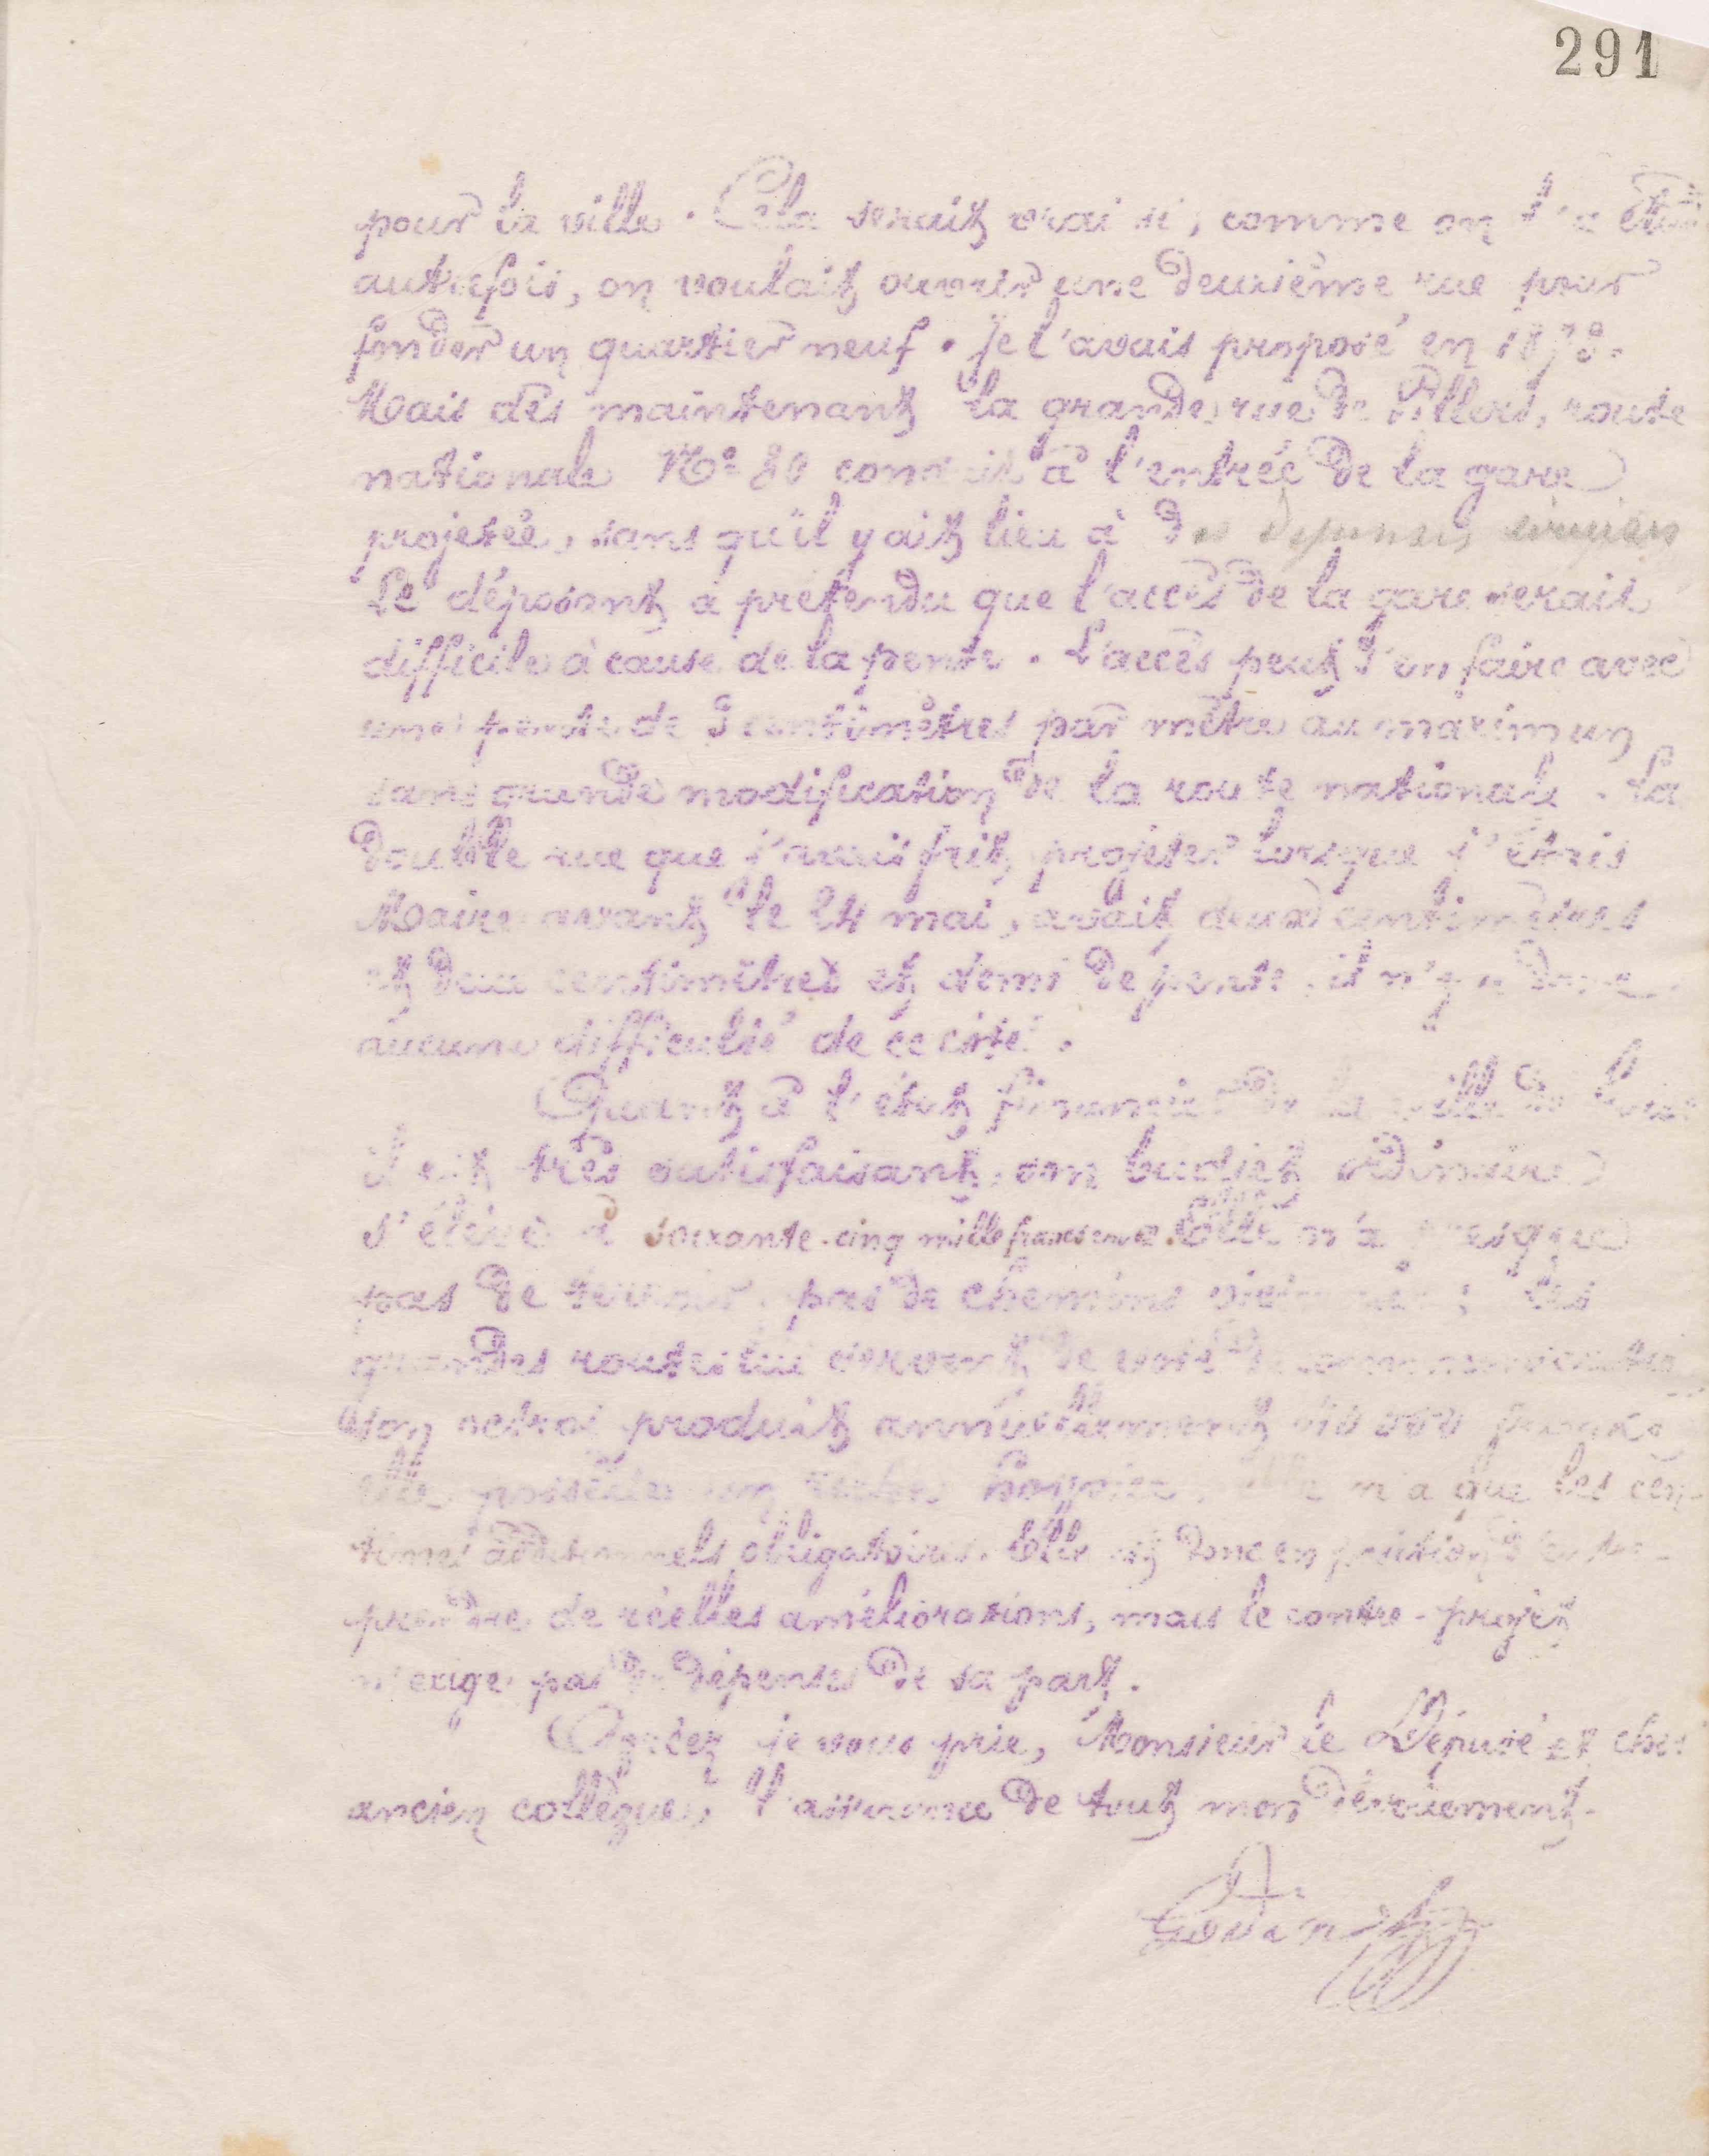 291
pour la ville. Cela serait vrai si, comme on l'a
autrefois, on voulait ouvrir une deuxième rue pour
fonder un quartier neuf. Je l'avais proposé en 1878.
Mais dès maintenant la grande rue de Villers, route
nationale N° 30 conduit à l'entrée de la gare
projetée, sans qu'il y ait lieu à des dépenses
Le déposant a prétendu que l'accès de la gare serait
difficile à cause de la pente. L'accès peut s'en faire avec
une pente de 3 centimètres par mètre au maximum
sans grande modification de la route nationale. La
double rue que j'avais fait projeter lorsque j'étais
Maire avant le 24 mai, avait deux centimètres
et deux centimètres et demi de pente, il n'y a donc
aucune difficulté de ce côté.
Quant à l'état financier de la ville de
il est très satisfaisant, son budget ordinaire
s'élève à soixante-cinq mille francs Elle n'a presque
pas de terroir, pas de chemins vicinaux ; les
grandes routes lui servent de voie de communication
Son octroi produit annuellement francs
elle possède un riche hospice. Elle n'a que les cen-
times additionnels obligatoires. Elle est donc en position d'entre-
prendre de réelles améliorations, mais le contre-projet
n'exige pas de dépenses de sa part.
Agréez je vous prie, Monsieur le Député et cher
ancien collègue, l'assurance de tout mon dévouement.
Godin